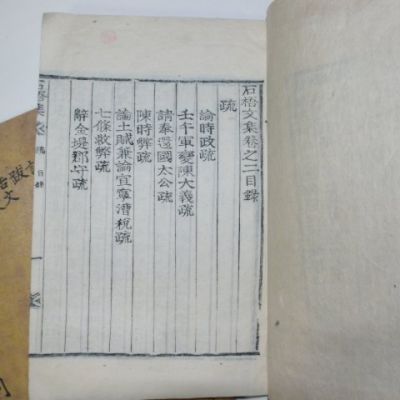 石梧文集卷之二目錄
疏
論時政疏
壬午軍變陳大義疏
請奉還國太公疏
陳時弊疏
論土賊兼論宜寧漕稅疏
七條救弊疏
辭金堤郡守疏
石梧集
目錄
跋
文